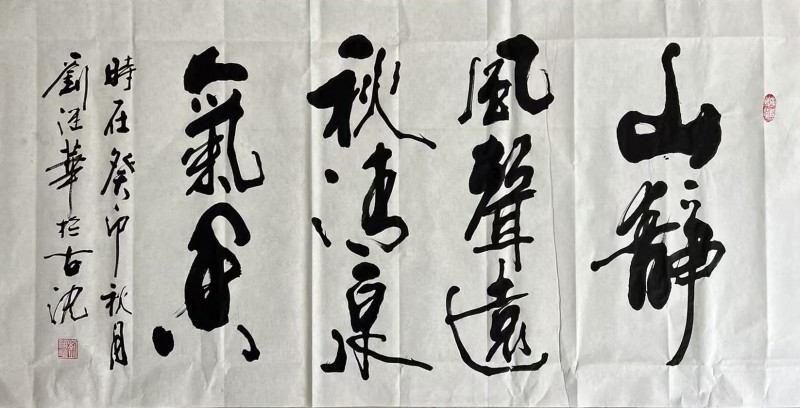 山靜
風聲遠
秋清泉
氣香
時在癸卯秋月
劉 華於古沈